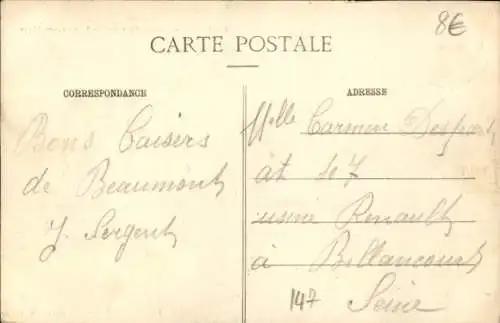 8€
CARTE POSTALE
CORRESPONDANCE
Bons Baisers
de Beaumont
J. Sergent
ADRESSE
Melle Carmen
at 147
usine Renault
à Billancourt
Seine
147